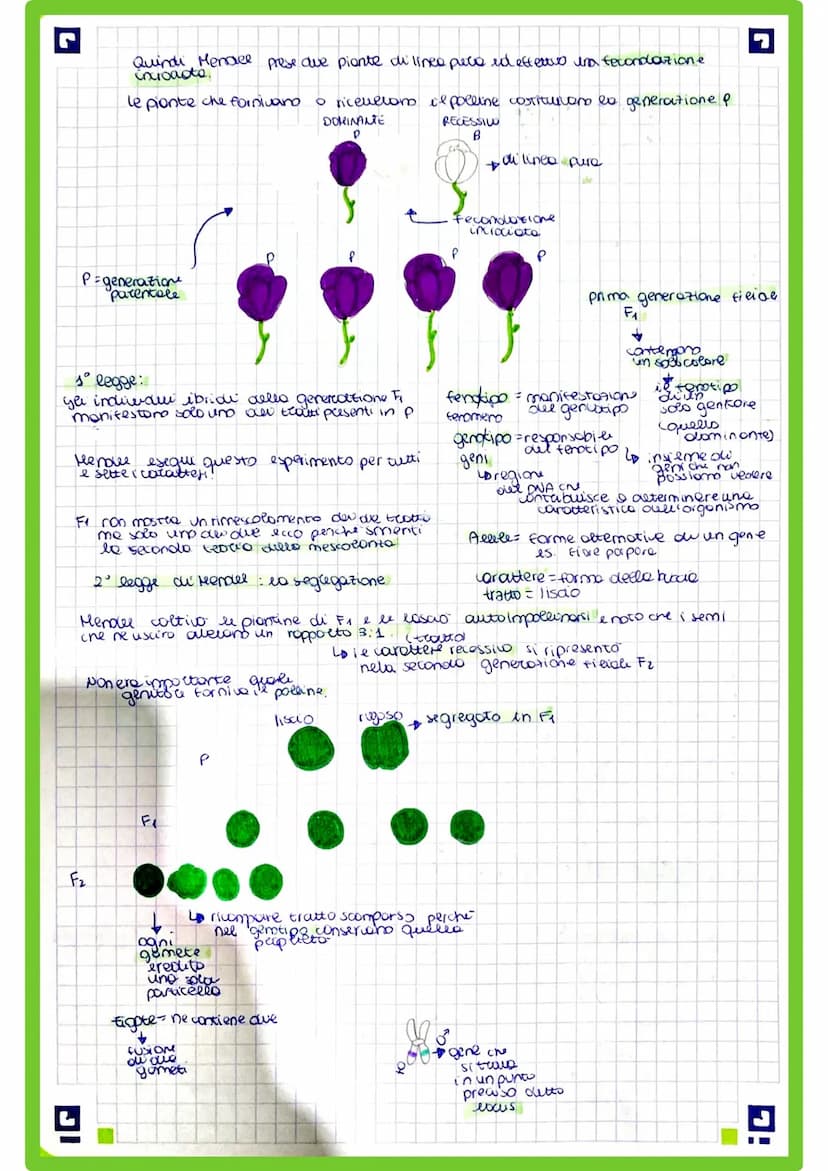 Quindi Mendel prese due piante di linea pura ed effettuò una fecondazione
incrociata.
Le piante che fornivano o ricevevano il polline costituivano la generazione P
DOMINANTE
RECESSIVO
P
B
di linea pura
fecondazione
incrociata
P = generazione
parentale
P
P
P
P
prima generazione filiale
F1
contengono
un solo colore
il fenotipo
di un
solo genitore
(quello
dominante)
1° legge:
gli individui ibridi della generazione F1
manifestano solo uno dei tratti presenti in P
fenotipo = manifestazione
fenomeno
del genotipo
genotipo = responsabile
geni
del fenotipo
insieme di
geni che non
possiamo vedere
regione
del DNA che
contribuisce a determinare una
caratteristica dell'organismo
Mendel eseguì questo esperimento per tutti
e sette i caratteri!
F1 non mostra un rimescolamento dei due tratti
ma solo uno dei due ecco perché smentì
la seconda teoria della mescolanza
Allele = forme alternative di un gene
es. fiore
2° legge di Mendel: la segregazione
carattere = forma della buccia
tratto = liscio
Mendel coltivò le piantine di F1 e le lasciò autoimpollinarsi e notò che i semi
che ne uscirono avevano un rapporto 3:1.
(tratto)
il carattere recessivo si ripresentò
nella seconda generazione filiale F2
Non era importante quale
genitore forniva il polline.
liscio
rugoso
segregato in F1
P
F1
F2
ricompare tratto scomparso perché
nel genotipo conservano quella
ogni
gamete
eredita
una sola
particella
zigote = ne contiene due
fusione
di due
gameti
♂
♀
gene che
si trova
in un punto
preciso detto
locus